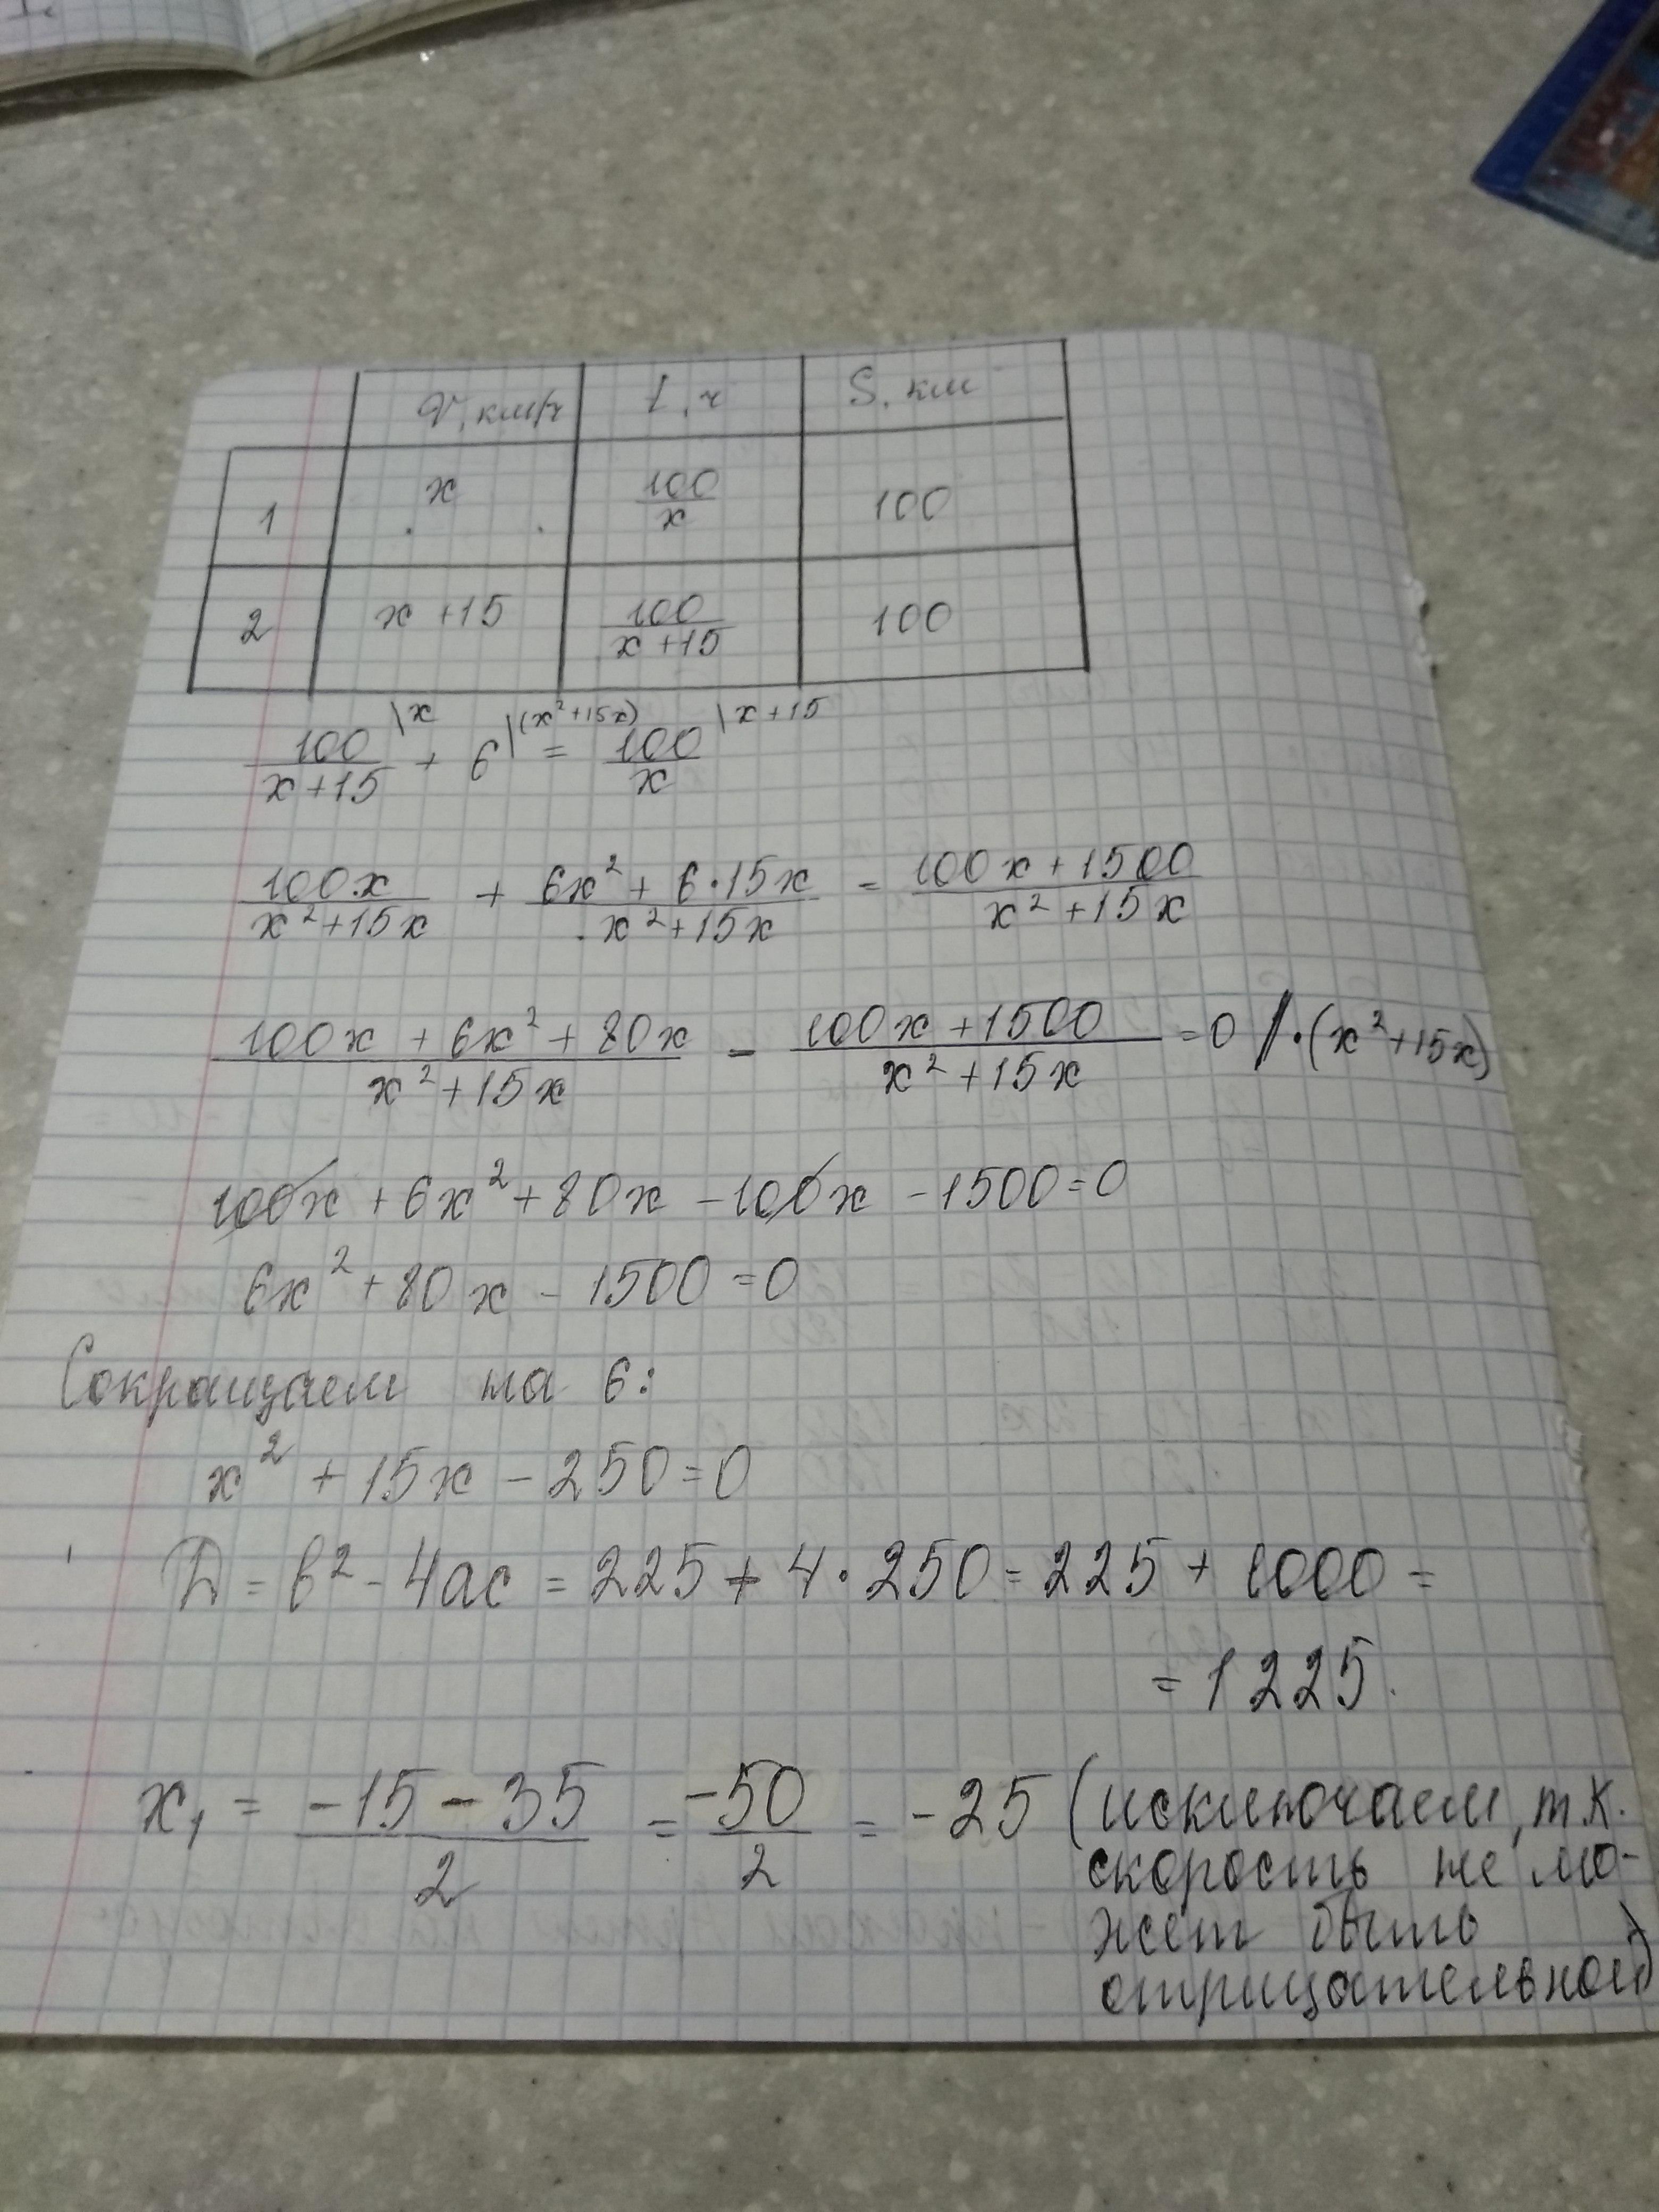 V, км/ч t, ч S, км
1 x 100/x 100
2 x+15 100/(x+15) 100
100/(x+15) \x + 6 |(x²+15x) = 100/x \x+15
100x/(x²+15x) + (6x²+6·15x)/(x²+15x) = (100x+1500)/(x²+15x)
(100x+6x²+80x)/(x²+15x) - (100x+1500)/(x²+15x) = 0 /·(x²+15x)
100x+6x²+80x-100x-1500=0
6x²+80x-1500=0
Сокращаем на 6:
x²+15x-250=0
D=b²-4ac=225+4·250=225+1000=
=1225.
x₁ = (-15-35)/2 = -50/2 = -25 (исключаем, т.к.
скорость не мо-
жет быть
отрицательной)